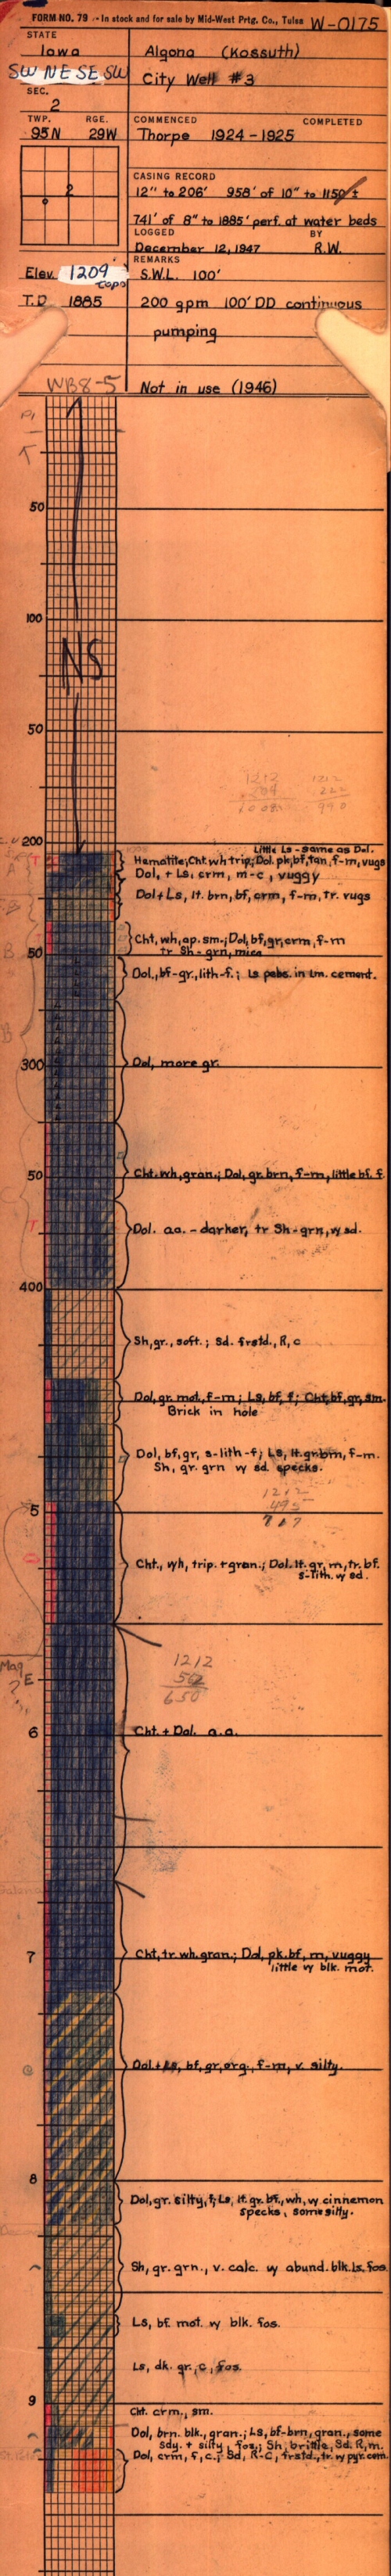 FORM NO. 79 - In stock and for sale by Mid-West Prtg. Co., Tulsa W-0175
STATE
Iowa
Algona (Kossuth)
SW NE SE SW
City Well #3
SEC.
2
TWP. RGE.
95N 29W
COMMENCED COMPLETED
Thorpe 1924-1925
2
CASING RECORD
12" to 206' 958' of 10" to 1150' ±
741' of 8" to 1885' perf. at water beds
LOGGED BY
December 12, 1947 R.W.
REMARKS
Elev. 1209 topo
S.W.L. 100'
T.D 1885
200 gpm 100' DD continuous
pumping
WB8-5
Not in use (1946)
50
100
NS
50
1212 1212
204 222
1008 990
200
Little Ls - same as Dol.
Hematite; Cht. wh trip; Dol. pk, bf, tan, f-m, vugs
Dol, + Ls, crm, m-c, vuggy
Dol + Ls, lt. brn, bf, crm, f-m, tr. vugs
Cht, wh, ap. sm.; Dol, bf, gr, crm, f-m
tr Sh - grn, mica
50
Dol., bf-gr, lith-f.; Ls pebs. in Lm. cement.
300
Dol, more gr.
50
Cht. wh, gran.; Dol, gr. brn, f-m, little bf. f.
Dol. aa. - darker, tr Sh - grn, w sd.
400
Sh, gr., soft.; Sd. frstd., R, c
Dol, gr. mot, f-m; Ls, bf, f; Cht, bf, gr, sm.
Brick in hole
Dol, bf, gr, s-lith-f; Ls, lt. gr. brn, f-m.
Sh, gr. grn w sd. specks.
1212
495
717
5
Cht., wh, trip. + gran.; Dol. lt. gr, m, tr. bf.
s-lith. w sd.
1212
562
650
Maq
?
E
6
Cht. + Dol. a.a.
Galena
7
Cht, tr wh. gran.; Dol, pk. bf, m, vuggy
little w blk. mot.
Dol. + Ls, bf, gr, org., f-m, v. silty.
8
Dol, gr. silty, f; Ls, lt. gr. bf., wh, w cinnemon
specks, some silty.
Sh, gr. grn., v. calc. w abund. blk. Ls. fos.
Ls, bf. mot. w blk. fos.
Ls, dk. gr., c, fos.
9
Cht. crm., sm.
Dol, brn. blk., gran.; Ls, bf-brn, gran., some
sdy. + silty, fos.; Sh, brittle, Sd. R, m.
Dol, crm, f, c.; Sd, R-C, frstd., tr. w pyr. cem.